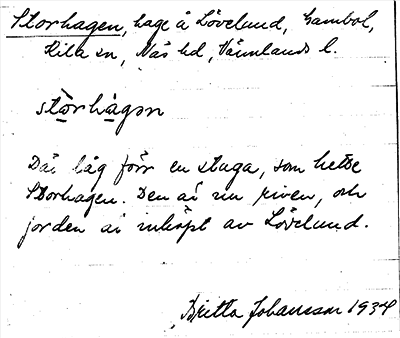 Storhagen, hage å Lövelund, Gambol,
Kila sn, Näs hd, Värmlands l.
stòrhàgən
Där låg förr en stuga, som hette
Storhagen. Den är nu riven, och
jorden är inköpt av Lövelund.
Britta Johansson 1934